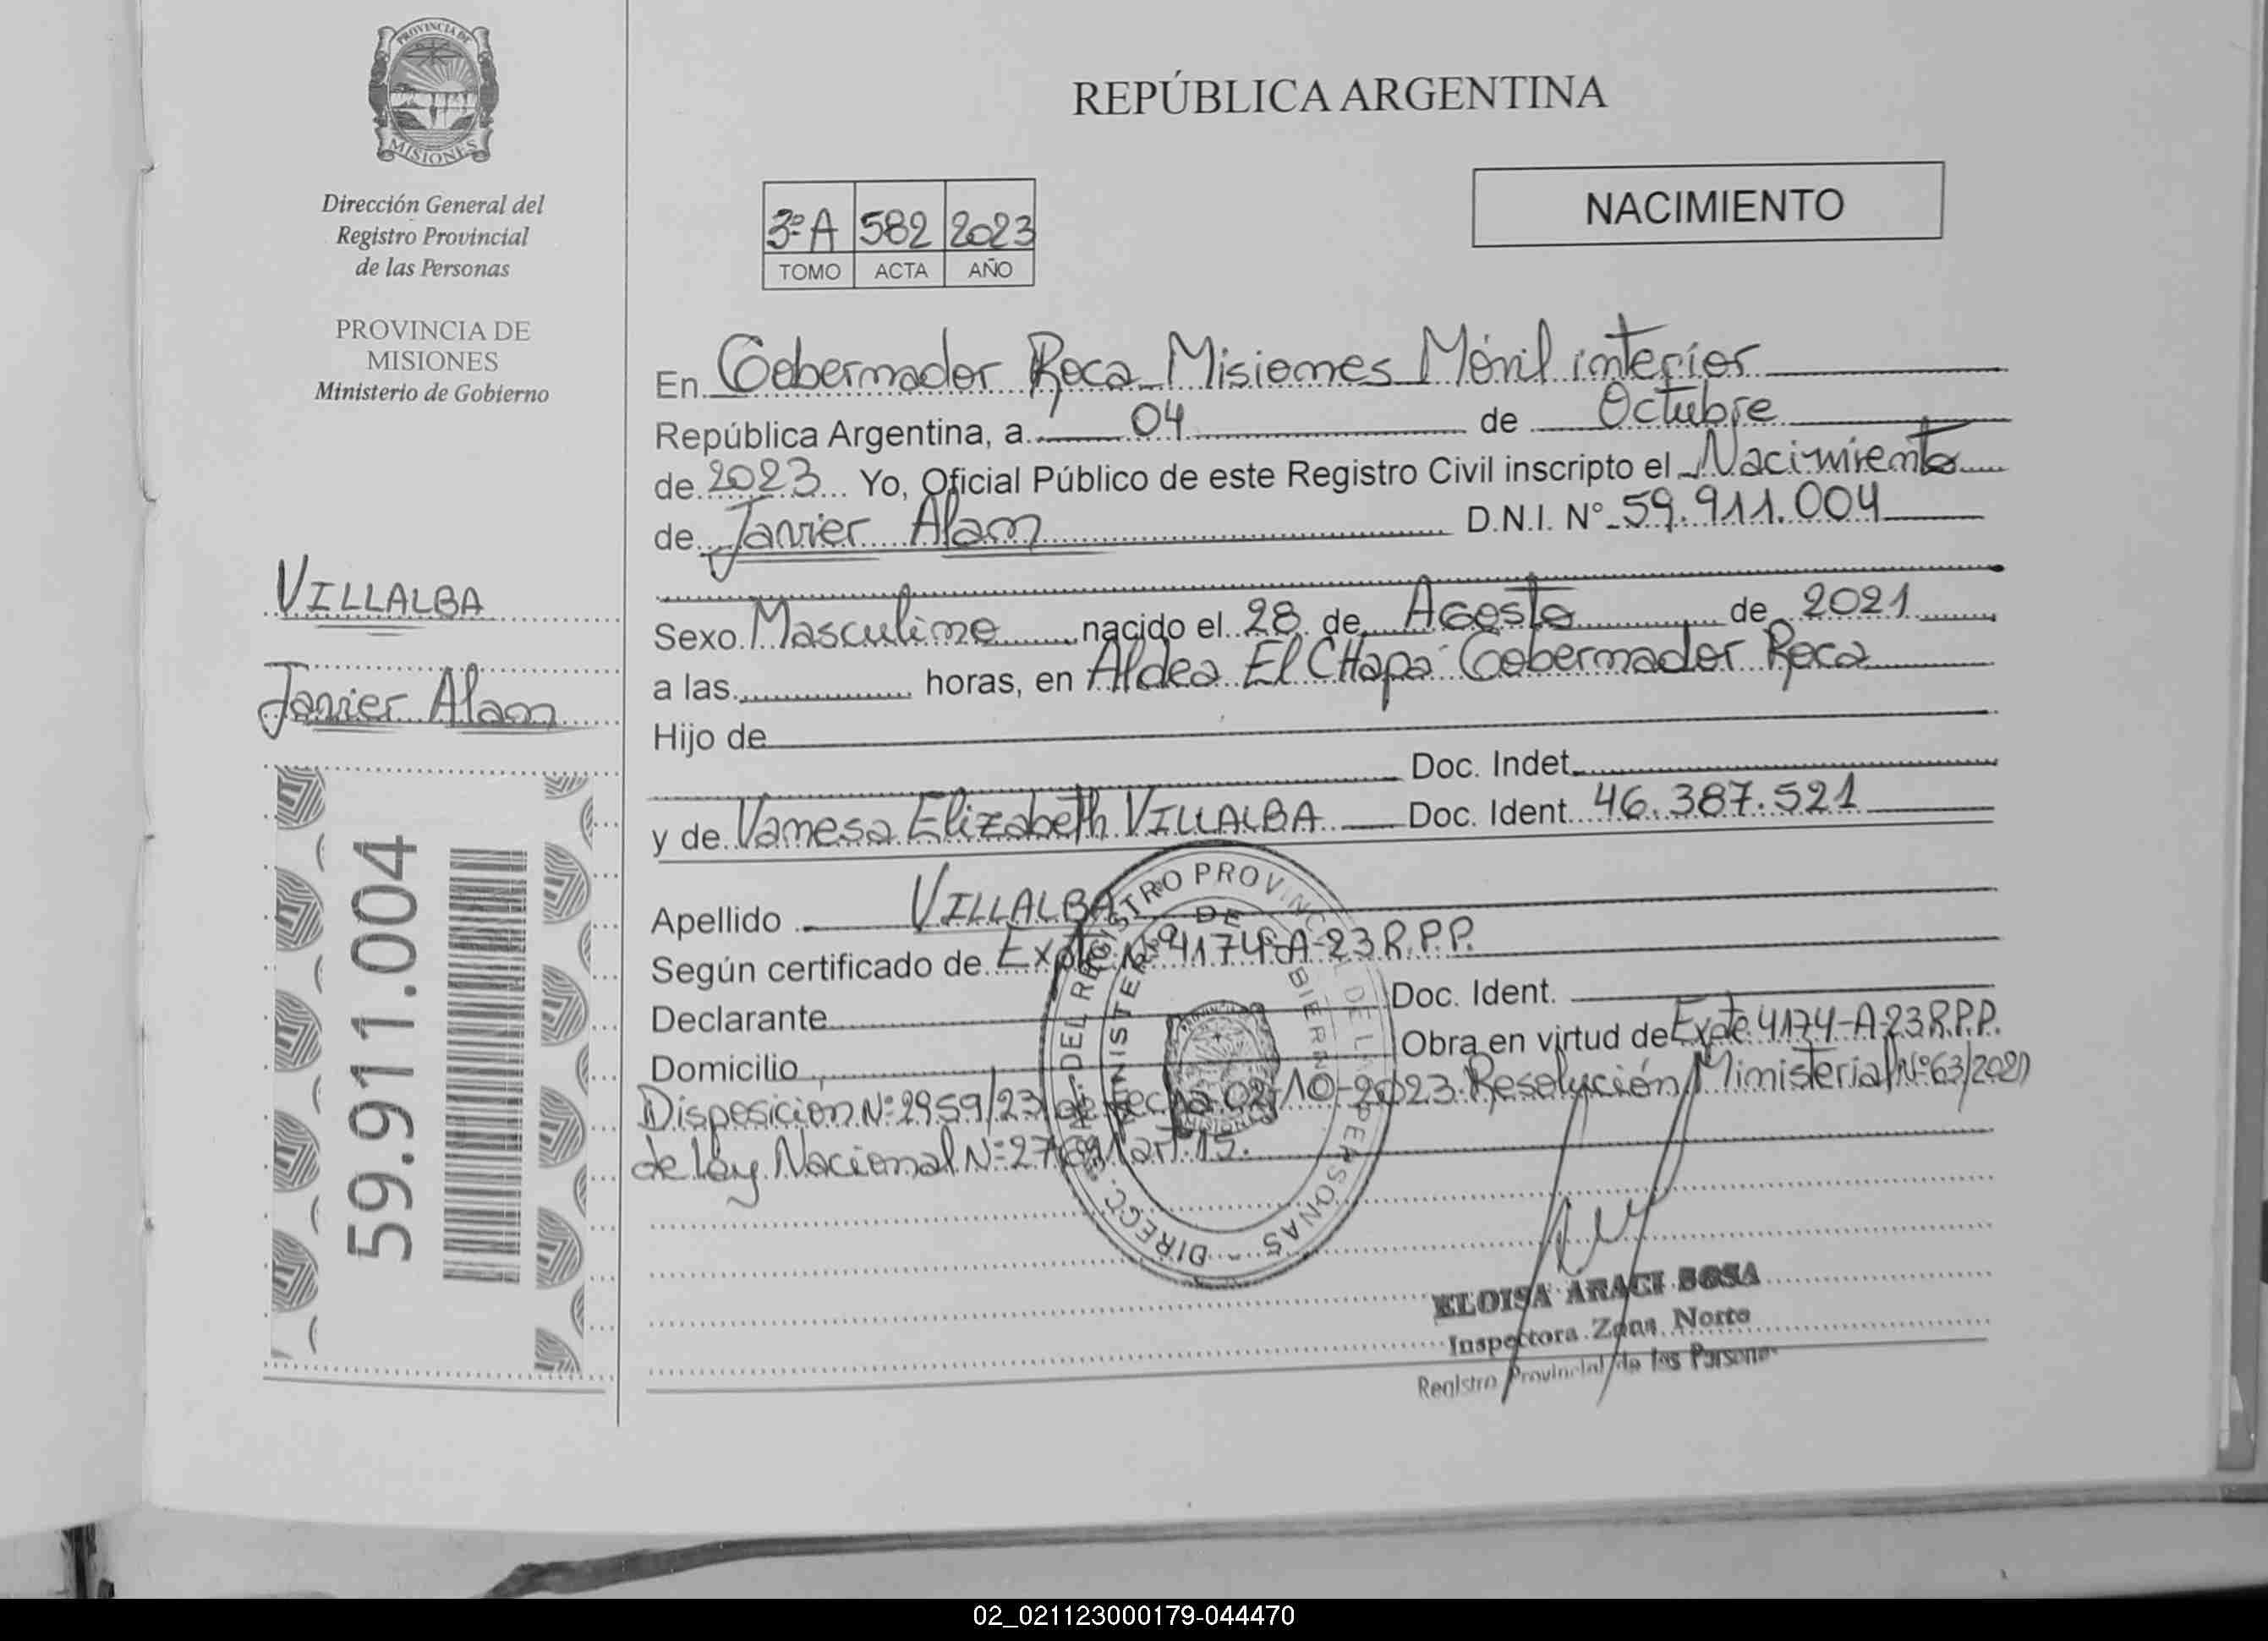 PROVINCIA DE
MISIONES
Dirección General del
Registro Provincial
de las Personas
PROVINCIA DE
MISIONES
Ministerio de Gobierno
VILLALBA
Javier Alam
59.911.004
REPÚBLICA ARGENTINA
NACIMIENTO
3º A 582 2023
TOMO ACTA AÑO
En Gobernador Roca Misiones Móvil interior
República Argentina, a 04 de Octubre
de 2023 Yo, Oficial Público de este Registro Civil inscripto el Nacimiento
de Javier Alam D.N.I. N° 59.911.004
Sexo Masculino nacido el 28 de Agosto de 2021
a las horas, en Aldea El CHapa Gobernador Roca
Hijo de
Doc. Indet.
y de Vanesa Elizabeth VILLALBA Doc. Ident. 46.387.521
Apellido VILLALBA
Según certificado de Expte Nº 4174-A-23 R.P.P.
Declarante Doc. Ident.
Domicilio Obra en virtud de Expte 4174-A-23 R.P.P.
Disposición Nº 2959/23 de Fecha 02-10-2023 Resolución Ministerial Nº 63/2021
de Ley Nacional Nº art. 15.
DIRECC. DEL REGISTRO PROVINC DE PERSONAS
MINISTERIO DE
MISIONES
ELOISA ARACI SOSA
Inspectora Zona Norte
Registro Provincial de las Personas
02_021123000179-044470